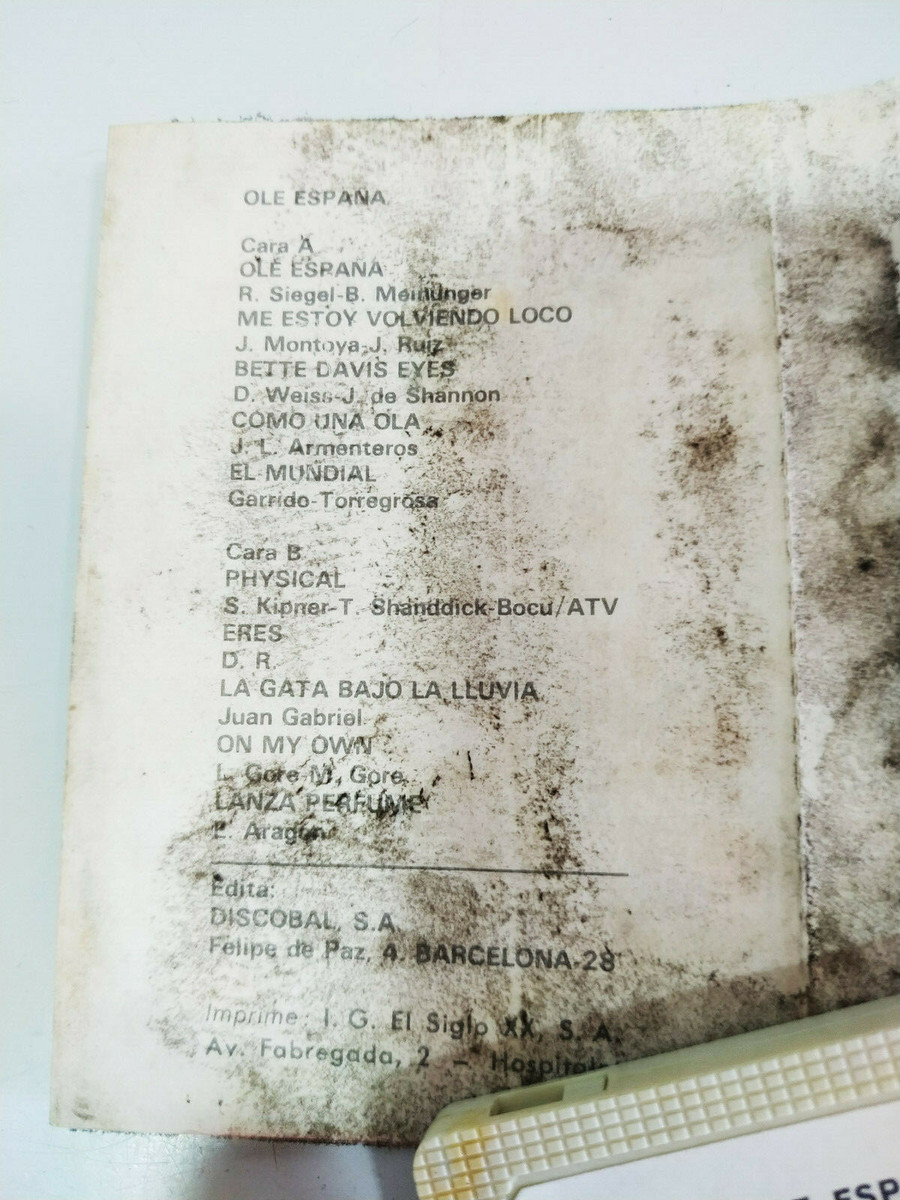 OLE ESPAÑA
Cara A
OLE ESPAÑA
R. Siegel-B. Meinunger
ME ESTOY VOLVIENDO LOCO
J. Montoya-J. Ruiz
BETTE DAVIS EYES
D. Weiss-J. de Shannon
COMO UNA OLA
J. L. Armenteros
EL MUNDIAL
Garrido-Torregrosa
Cara B
PHYSICAL
S. Kipner-T. Shanddick-Bocu/ATV
ERES
D. R.
LA GATA BAJO LA LLUVIA
Juan Gabriel
ON MY OWN
L. Gore-M. Gore
LANZA PERFUME
Aragón
Edita:
DISCOBAL, S.A.
Felipe de Paz, 4. BARCELONA-28
Imprime: I. G. El Siglo XX, S. A.
Av. Fabregada, 2 -